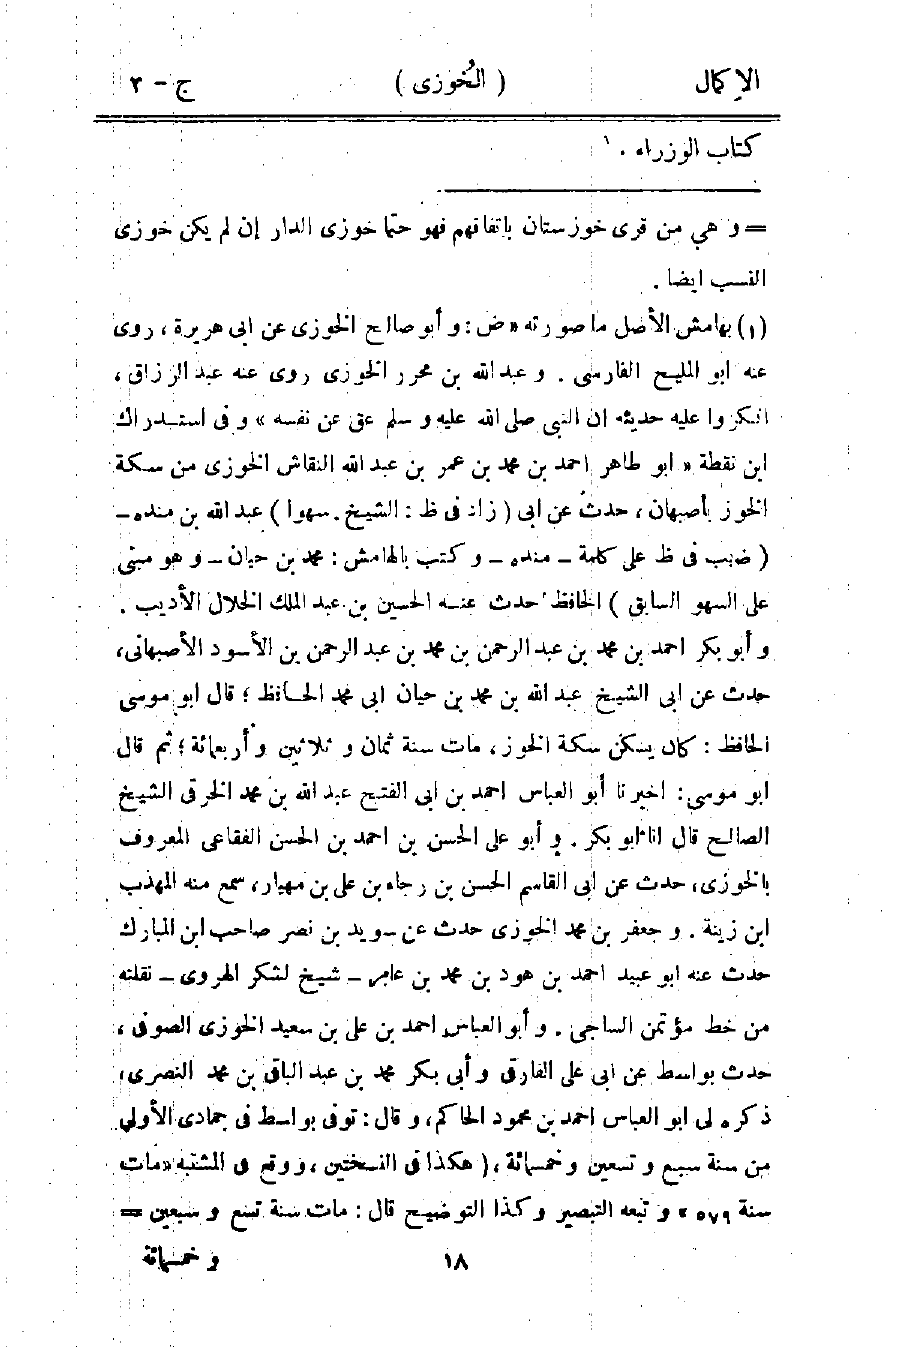 الإكمال ( الخُوزى ) ج - ٣
كتاب الوزراء . ١
= و هي من قرى خوزستان باتفاقهم فهو حتما خوزى الدار إن لم يكن خوزى
النسب ايضا .
(١) بهامش الأصل ما صورته «ض: و أبو صالح الخوزى عن ابى هريرة ، روى
عنه ابو المليح الفارسى . و عبد الله بن محرر الخوزى روى عنه عبد الرزاق ،
انكروا عليه حديثه ان النبى صلى الله عليه و سلم عق عن نفسه » و فى استدراك
ابن نقطة « ابو طاهر احمد بن محمد بن عمر بن عبد الله النقاش الخوزى من سكة
الخوز بأصبهان ، حدث عن ابى ( زاد فى ظ : الشيخ . سهوا ) عبد الله بن منده -
( ضبب فى ظ على كلمة - منده - و كتب بالهامش : محمد بن حيان - و هو مبنى
على السهو السابق ) الحافظ حدث عنه الحسين بن عبد الملك الخلال الأديب .
و أبو بكر احمد بن محمد بن عبد الرحمن بن محمد بن عبد الرحمن بن الأسود الأصبهانى،
حدث عن ابى الشيخ عبد الله بن محمد بن حيان ابى محمد الحافظ ؛ قال ابو موسى
الحافظ : كان يسكن سكة الخوز ، مات سنة ثمان و ثلاثين و أربعمائة ؛ ثم قال
ابو موسى: اخبرنا أبو العباس احمد بن ابى الفتح عبد الله بن محمد الخرقى الشيخ
الصالح قال انا ابو بكر . و أبو على الحسن بن احمد بن الحسن الفقاعى المعروف
بالخوزى، حدث عن ابى القاسم الحسن بن رجاء بن على بن مهيار، سمع منه المهذب
ابن زينة . و جعفر بن محمد الخوزى حدث عن سويد بن نصر صاحب ابن المبارك
حدث عنه ابو عبيد احمد بن هود بن محمد بن عامر - شيخ لشكر الهروى - نقلته
من خط مؤتمن الساجى . و أبو العباس احمد بن على بن سعيد الخوزى الصوفى ،
حدث بواسط عن ابى على الفارقى و أبى بكر محمد بن عبد الباقى بن محمد النصرى،
ذكره لى ابو العباس احمد بن محمود الحاكم، و قال: توفى بواسط فى جمادى الأولى
من سنة سبع و تسعين و خمسمائة ، ( هكذا فى النسختين ، ووقع فى المشتبه «مات
سنة ٥٧٩ » و تبعه التبصير وكذا التوضيح قال : مات سنة تسع و سبعين =
١٨ و خمسمائة